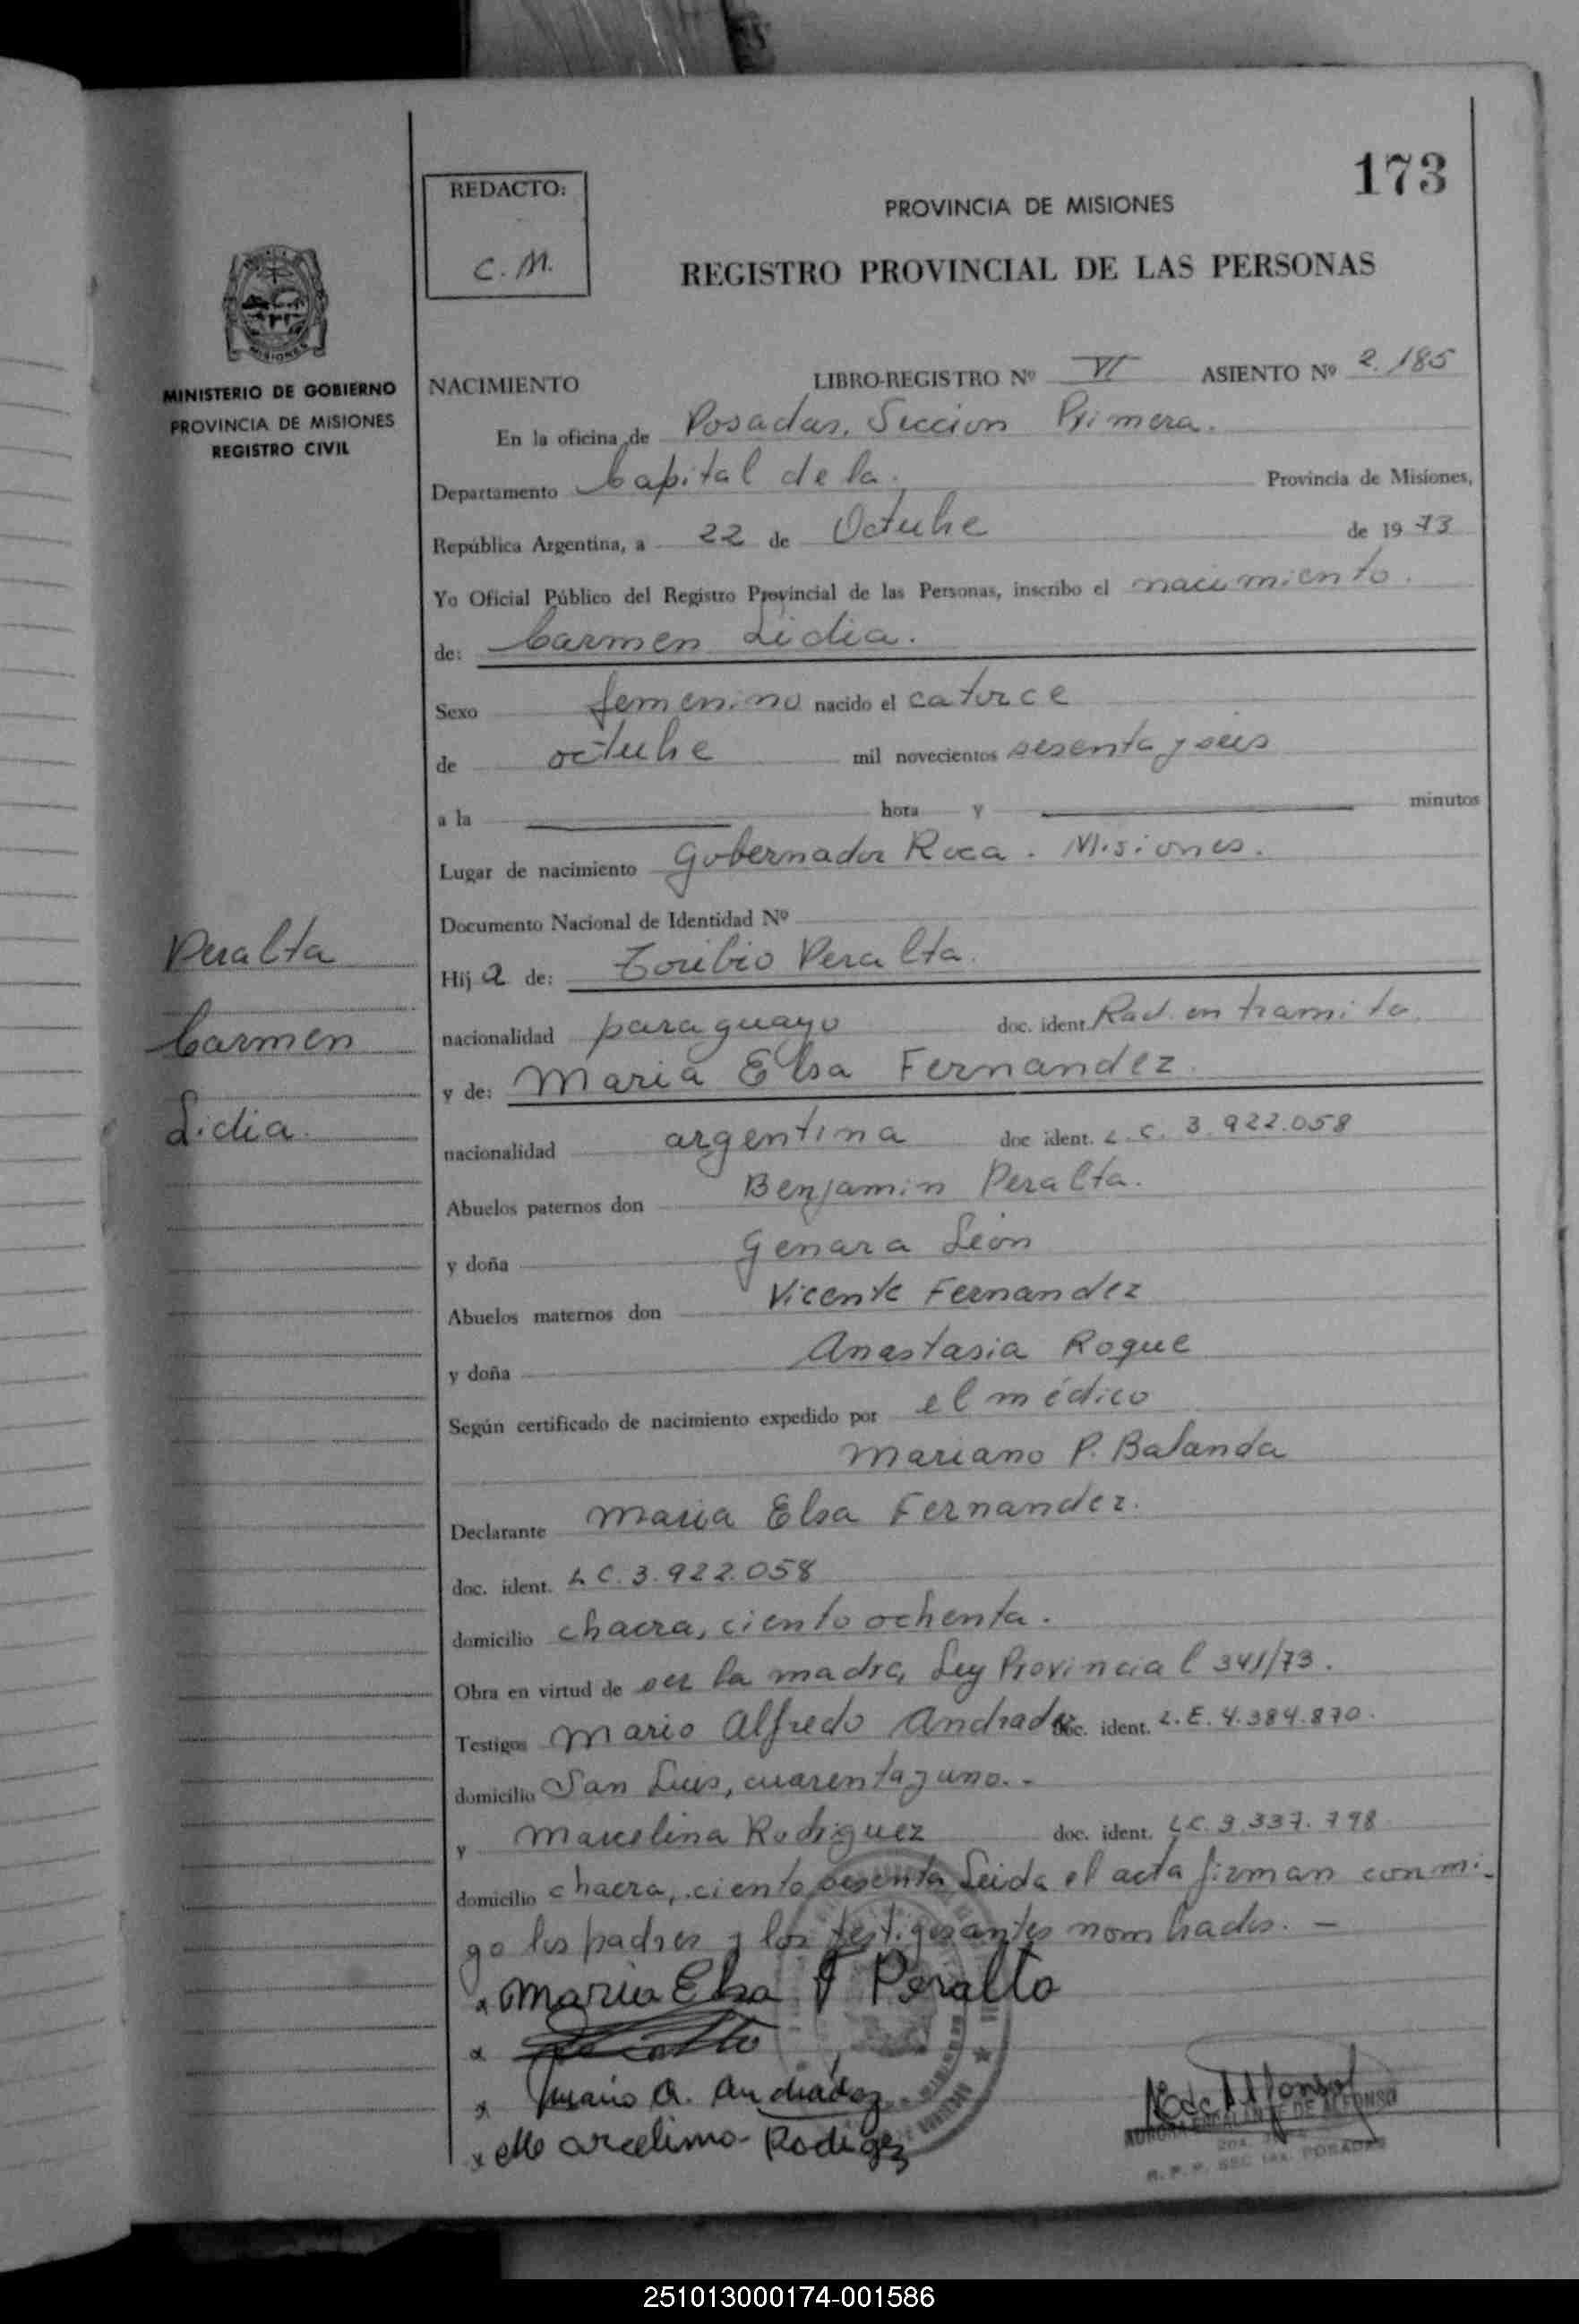 173
REDACTO:
C. M.
PROVINCIA DE MISIONES
REGISTRO PROVINCIAL DE LAS PERSONAS
MISIONES
MINISTERIO DE GOBIERNO
PROVINCIA DE MISIONES
REGISTRO CIVIL
NACIMIENTO LIBRO-REGISTRO Nº VI ASIENTO Nº 2.185
En la oficina de Posadas, Seccion Primera.
Departamento Capital de la. Provincia de Misiones,
República Argentina, a 22 de Octubre de 1973
Yo Oficial Público del Registro Provincial de las Personas, inscribo el nacimiento.
de: Carmen Lidia.
Sexo femenino nacido el catorce
de octubre mil novecientos sesenta y seis
a la hora y minutos
Lugar de nacimiento Gobernador Roca. Misiones.
Documento Nacional de Identidad Nº
Peralta
Carmen
Lidia.
Hija de: Toribio Peralta.
nacionalidad paraguayo doc. ident. Rad. en tramite
y de: Maria Elsa Fernandez.
nacionalidad argentina doc ident. L. C. 3.922.058
Abuelos paternos don Benjamin Peralta.
y doña Genara León
Abuelos maternos don Vicente Fernandez
y doña Anastasia Roque
Según certificado de nacimiento expedido por el médico
Mariano P. Balanda
Declarante Maria Elsa Fernandez.
doc. ident. L C. 3.922.058
domicilio chacra, ciento ochenta.
Obra en virtud de ser la madre, Ley Provincial 341/73.
Testigos Mario Alfredo Andrade doc. ident. L.E. 4.384.870.
domicilio San Luis, cuarenta y uno.-
y Marcelina Rodriguez doc. ident. L.C. 9.337.798
domicilio chacra, ciento sesenta Leida el acta firman conmi-
go los padres y los testigos antes nombrados. -
x Maria Elsa F Peralta
x
x Mario A. Andradez
x Marcelina Rodigez
AURORA ESCALANTE DE ALFONSO
R. P. P. SEC 1ra. POSADAS
251013000174-001586